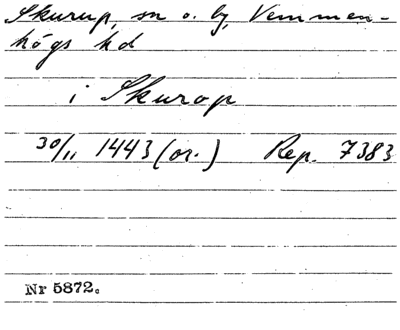 Skurup, sn o. by, Vemmen-
högs hd
i Skurop
30/11 1443 (or.) Rep. 7383
Nr 5872.